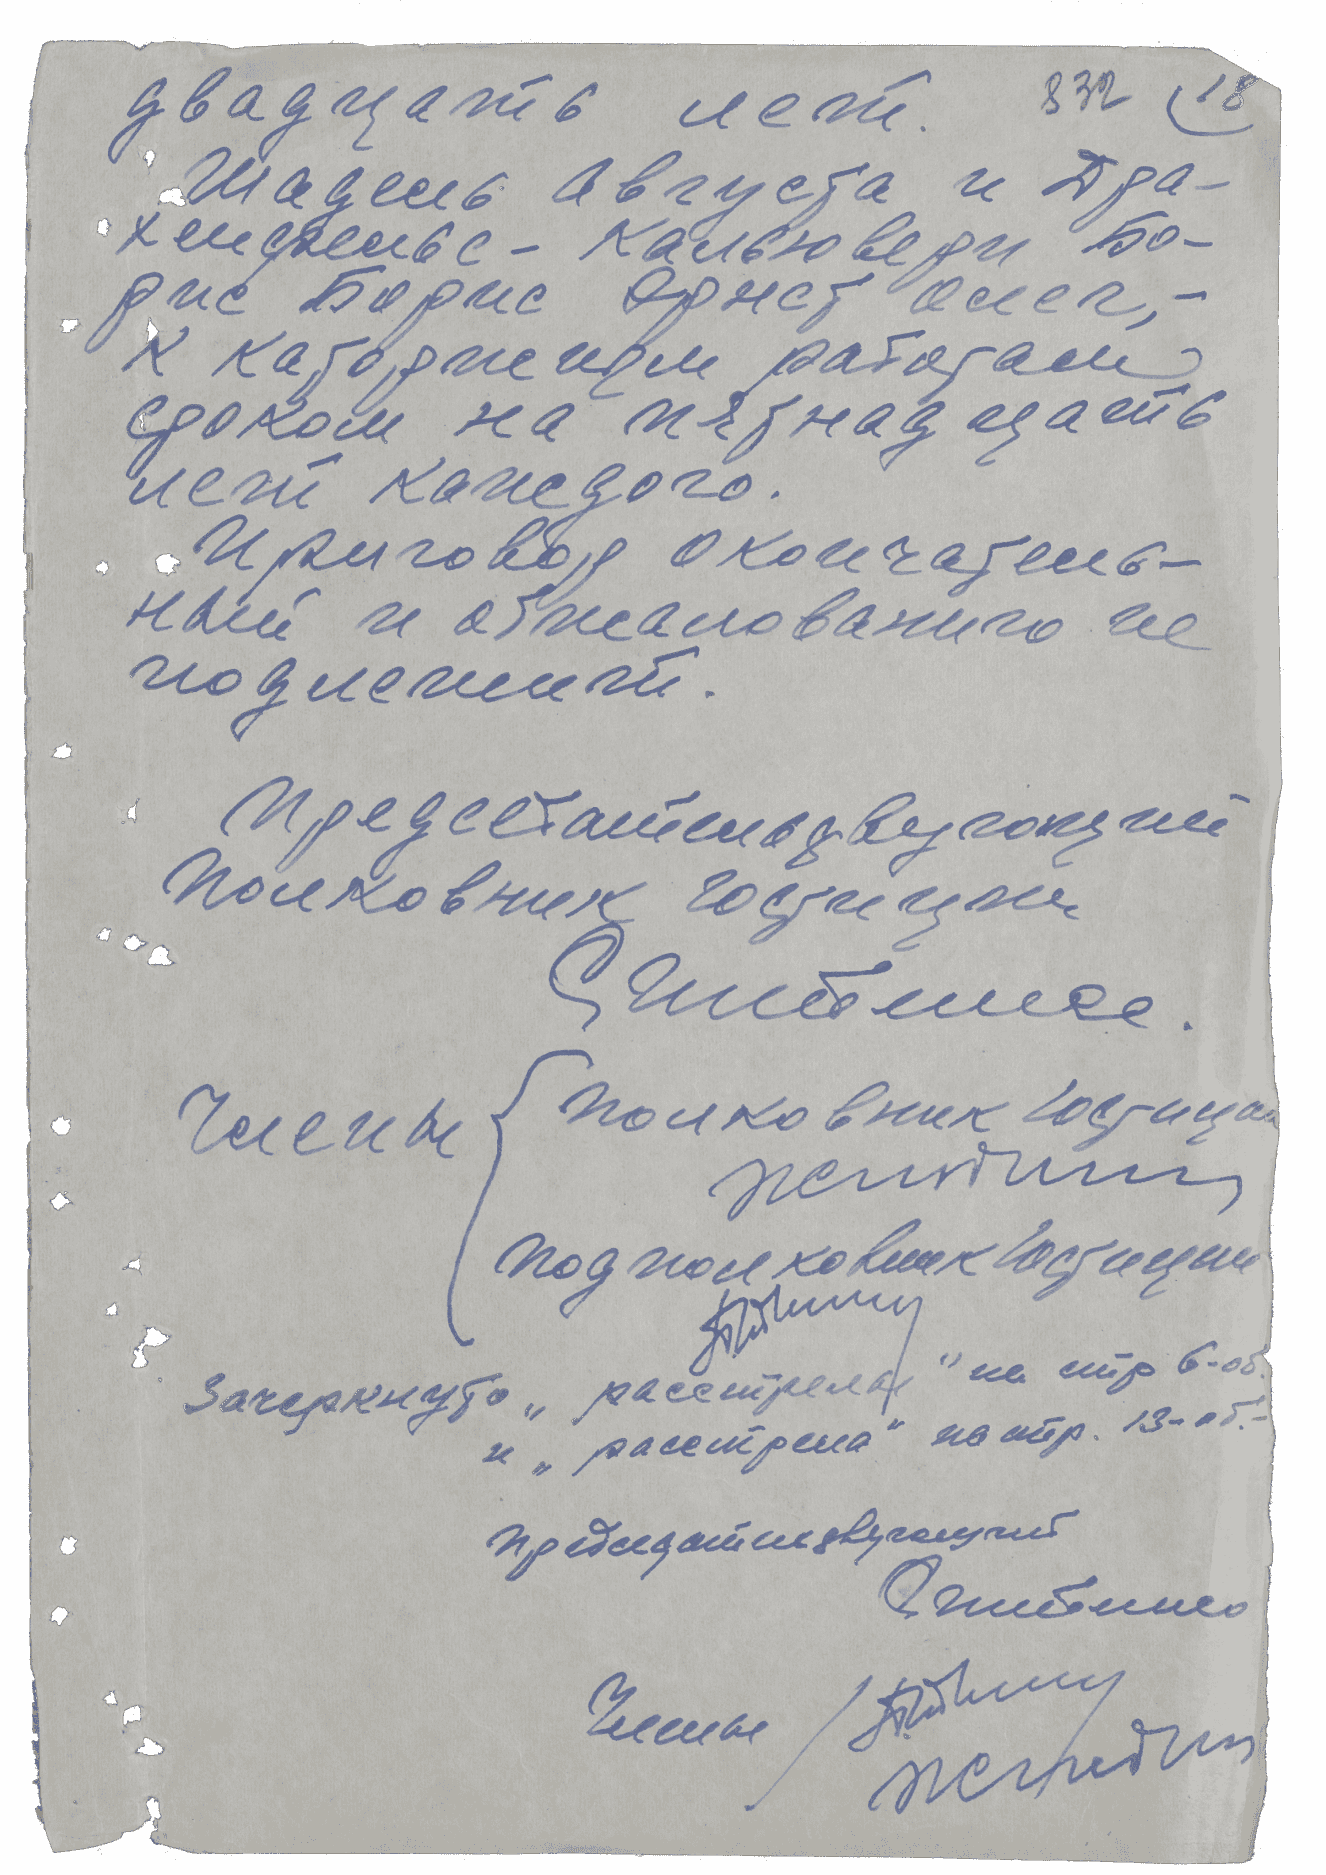 двадцать лет. 832 18
Шадель Августа и Дра-
хенфельс-Кальювери Бо-
рис Борис Эрнст Олег,-
к каторжным работам
сроком на пятнадцать
лет каждого.
Приговор окончатель-
ный и обжалованию не
подлежит.
Председательствующий
Полковник юстиции
Члены Полковник юстиции
Подполковник юстиции
Зачеркнуто „расстрелы" на стр 6-об.
и „расстрела" на стр. 13-об.-
Председательствующий
Члены